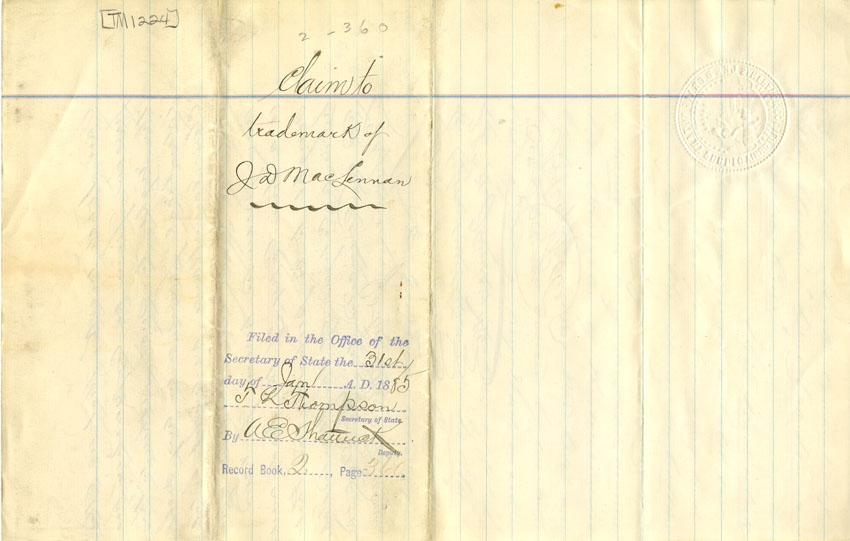 [TM1224]
2-360
Claim to
trademark of
J D MacLennan
Filed in the Office of the
Secretary of State the 31st
day of Jan A. D. 1885
T L Thompson
Secretary of State.
By A E Shattuck
Deputy.
Record Book, 2, Page 360